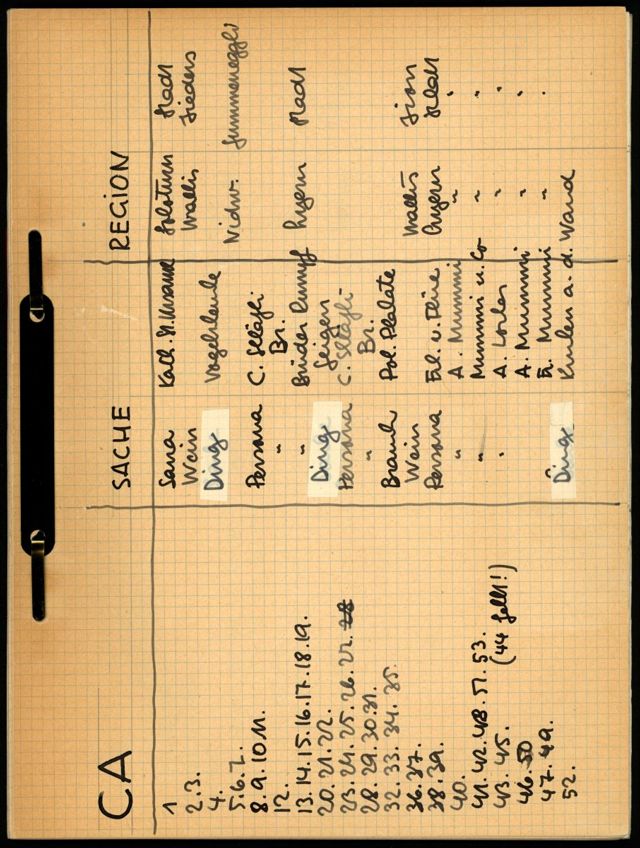 CA SACHE REGION
1 Kath. Stadt
2.3. Wein Wallis
4. Ding Nidw.
5.6.7.
8.9.10.11. Persona C.
12. " Br.
13.14.15.16.17.18.19. " Brüder Rumpf Luzern Stadt
20. 21. 22. Ding Geigen
23. 24. 25. 26. 27. 28 Persona C.
28. 29. 30. 31. " Br.
32. 33. 34. 35. Brauch Pol. Plakate
36. 37. Wein Wallis Sion
38. 39. Persona Luzern Stadt
40. " A. Mummi " "
41. 42. 48. 51. 53. " Mummi u. Co " "
43. 45. (44 fehlt!) " A. " "
46. 50 A. Mummi " "
47. 49. Fr. Mummi " "
52. Ding a. d. Wand